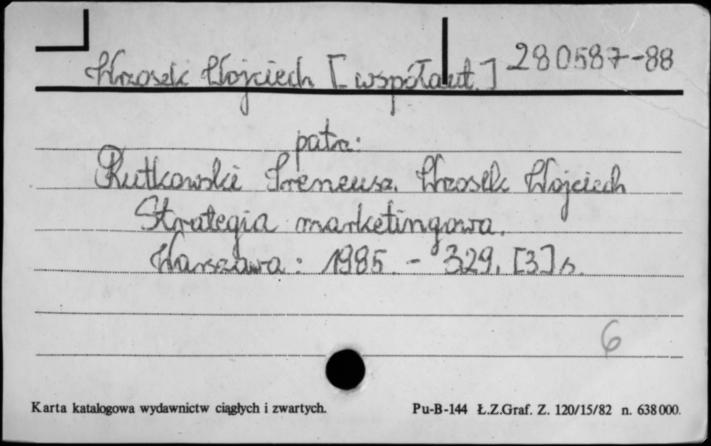 Wrzosek Wojciech [współaut.] 280587-88
patrz:
Rutkowski Ireneusz, Wrzosek Wojciech
Strategia marketingowa.
Warszawa: 1985. - 329, [3] s.
6
Karta katalogowa wydawnictw ciągłych i zwartych. Pu-B-144 Ł.Z.Graf. Z. 120/15/82 n. 638000.